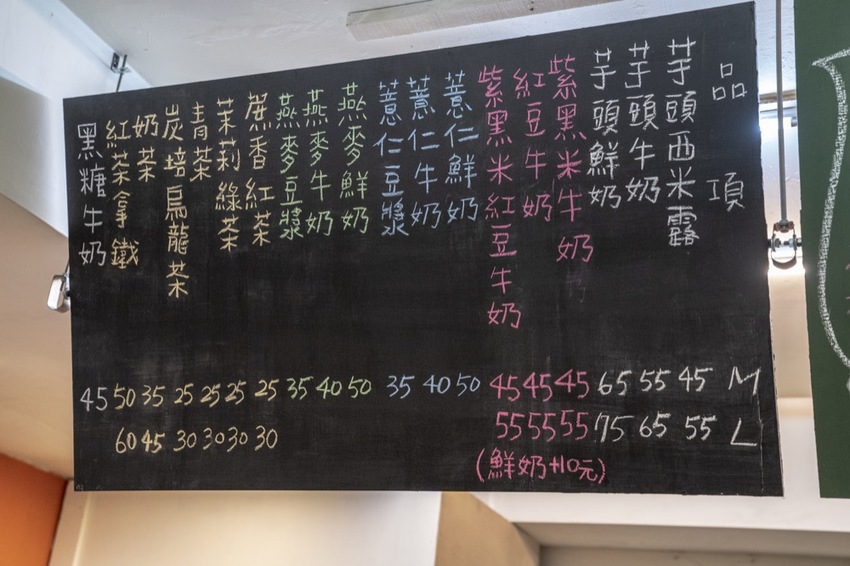 品項
芋頭西米露
芋頭牛奶
芋頭鮮奶
紫黑米牛奶
紅豆牛奶
紫黑米紅豆牛奶
薏仁鮮奶
薏仁牛奶
薏仁豆漿
燕麥鮮奶
燕麥牛奶
燕麥豆漿
蔗香紅茶
茉莉綠茶
青茶
炭培烏龍茶
奶茶
紅茶拿鐵
黑糖牛奶
M 45 55 65 45 45 45 50 40 35 50 40 35 25 25 25 25 35 50 45
L 55 65 75 55 55 55 30 30 30 30 45 60
(鮮奶+10元)